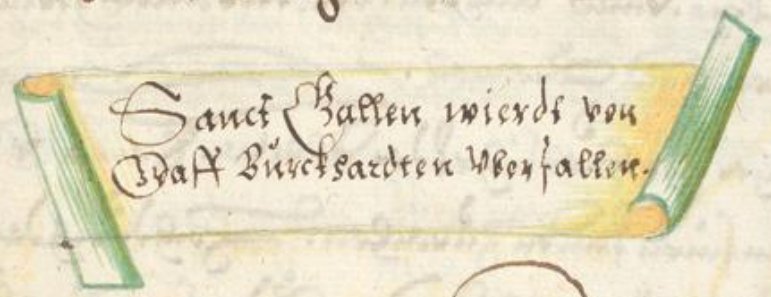 Sanct Gallen wierdt von
Graff Burckhardten Vberfallen.